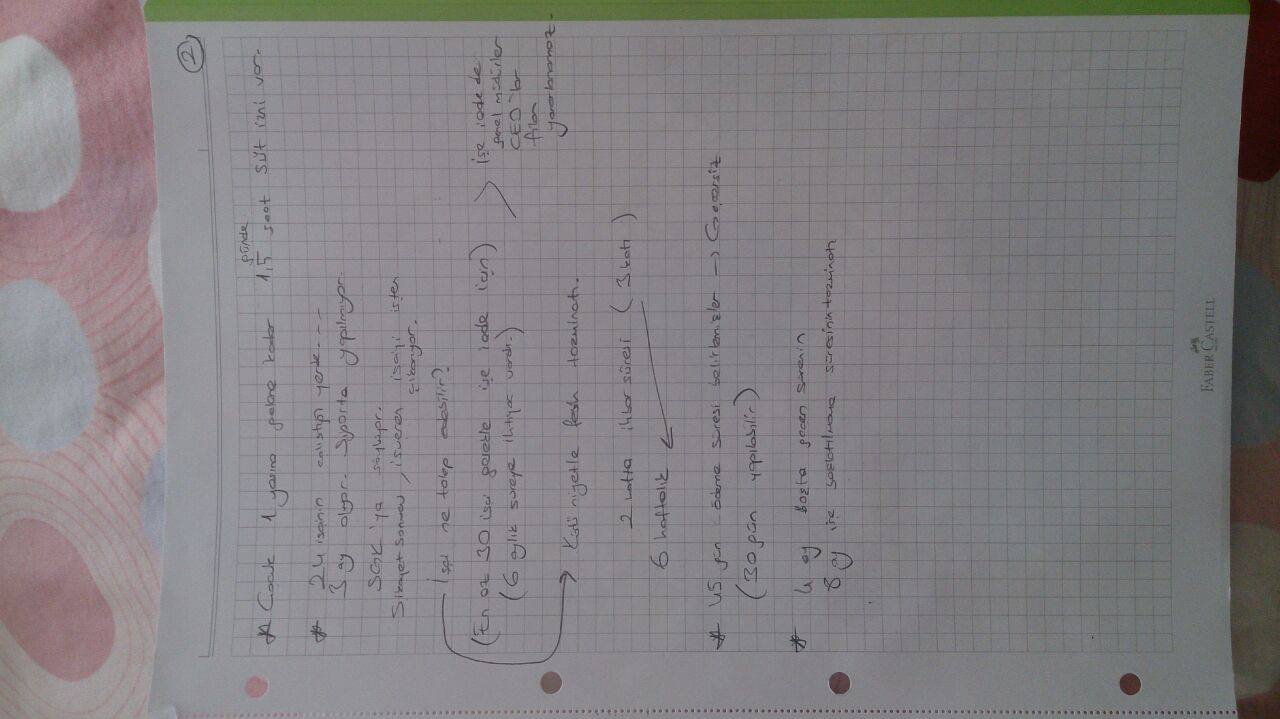 2
* Çocuk 1 yaşına gelene kadar günde 1,5 saat süt izni var.
* 24 işçinin çalıştığı yerde. - - -
3 ay oluyor. Sigorta yapılmıyor.
SGK'ya söylüyor.
Şikayet sonucu, işveren işçiyi işten çıkarıyor.
İşçi ne talep edebilir?
(En az 30 işçi gerekle işe iade için)
(6 aylık süreye ihtiyaç vardı.)
işe iade de
genel müdürler
CEO'lar
filan
yararlanamaz.
Kötü niyetle fesih tazminatı.
2 hafta ihbar süresi (3 katı)
6 haftalık
* 45 gün ödeme süresi belirlemişler → Geçersiz
(30 gün yapılabilir)
* 4 ay boşta geçen sürenin
8 ay işe başlatılmama süresinin tazminatı
FABER CASTELL